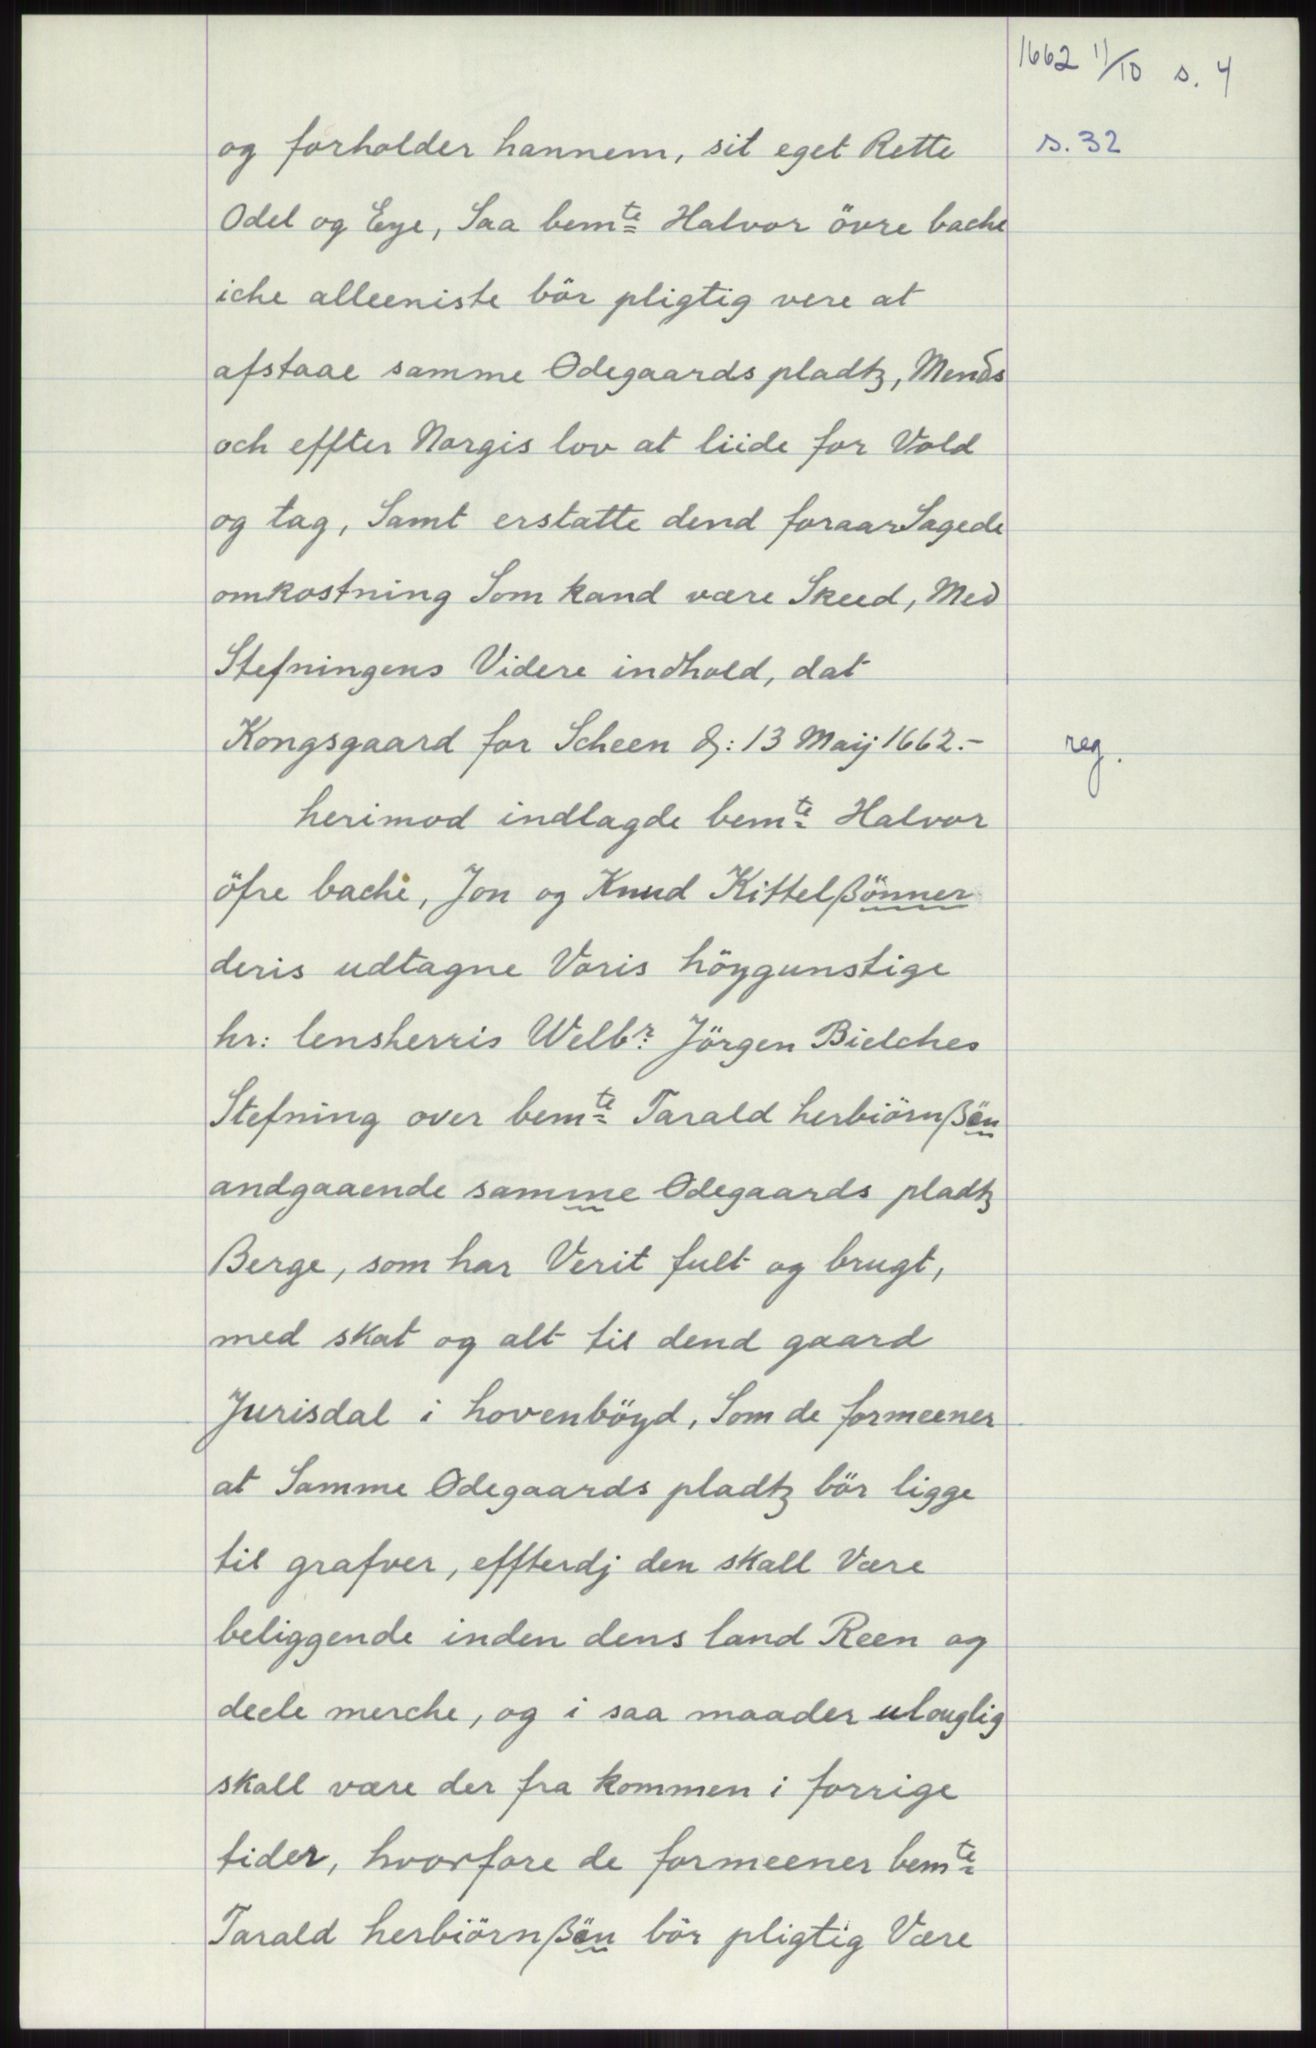 1662 11/10 s. 4
og forholder hannem, sit eget Rette
s. 32
Odel og Eye, Saa bemte Halvor övre bache
iche alleeniste bör pligtig vere at
afstaae samme Ødegaards pladtz, Mens
och effter Norgis lov at liide for Vold
og tag, Samt erstatte dend foraarSagede
omkostning Som kand være Skeed, Med
Stefningens Videre indhold, dat
Kongsgaard for Scheen d: 13 Maij 1662.-
reg.
herimod indlagde bemte Halvor
öfre bache, Jon og Knud Kittelßönner
deris udtagne Voris höygunstige
hr: lensherris Welbr: Jörgen Bielches
Stefning over bemte Tarald herbiörnßön
andgaaende samme Ødegaards pladtz
Berge, som har Verit fult og brugt,
med skat og alt til dend gaard
Jurisdal i hovenböyd, Som de formeener
at Samme Ødegaards pladtz bör ligge
til grafver, effterdj den skall Være
beliggende inden dens land Reen og
deele merche, og i saa maader ulouglig
skall være der fra kommen i forrige
tider, hvorfore de formeener bemte
Tarald herbiörnßön bör pligtig Være